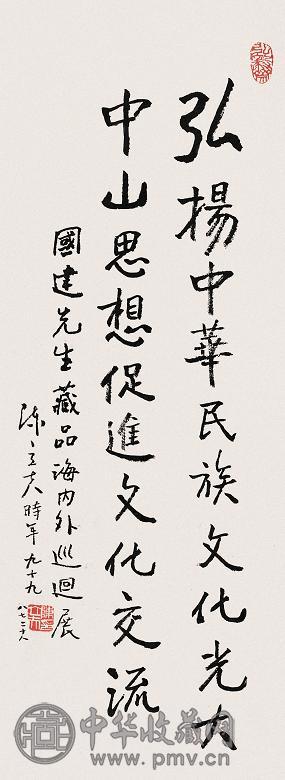 弘揚中華民族文化光大
中山思想促進文化交流
國建先生藏品海内外巡迴展
陳立夫時年九十九
中华收藏网
www.pmv.cn